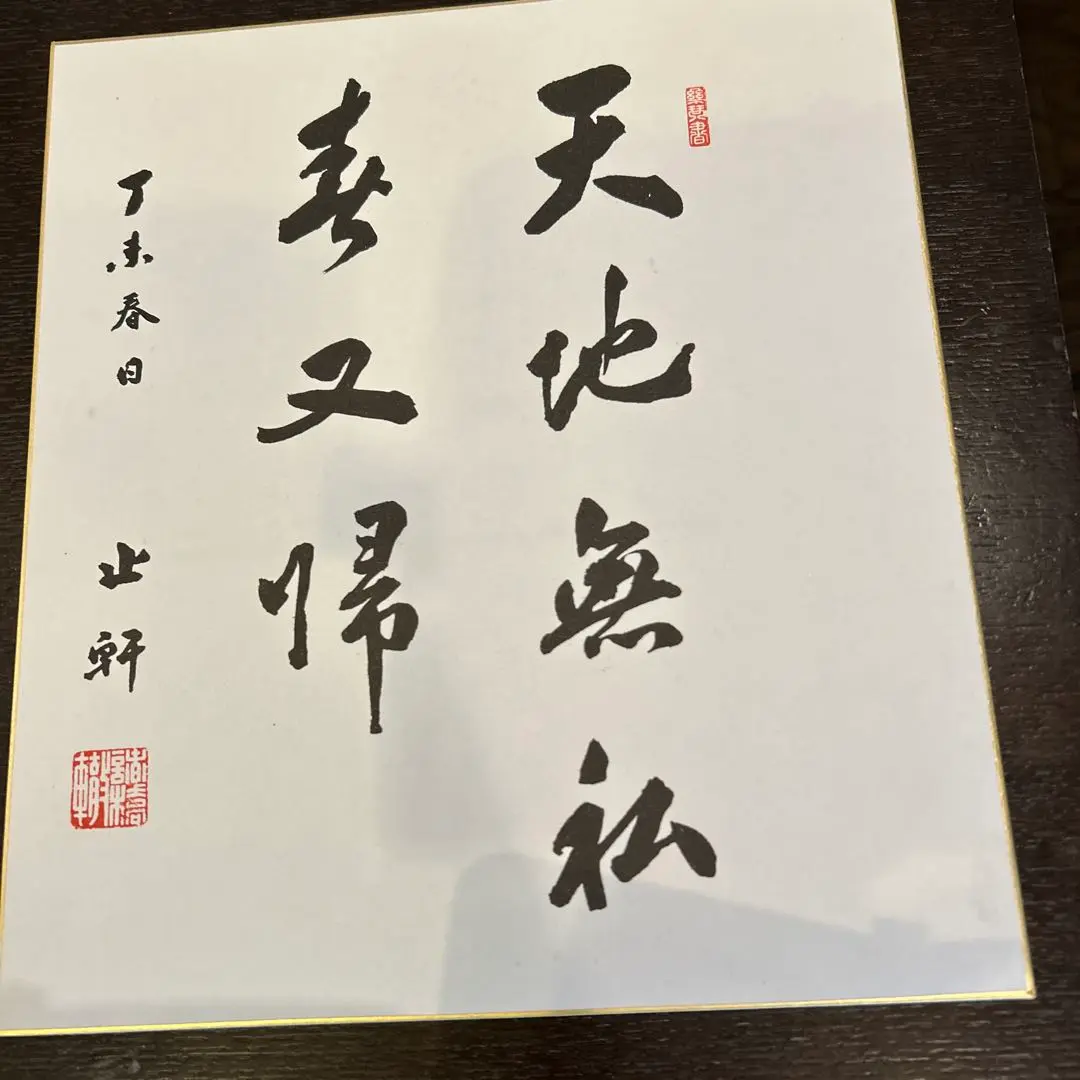 天地無私
春又帰
丁未春日
止軒